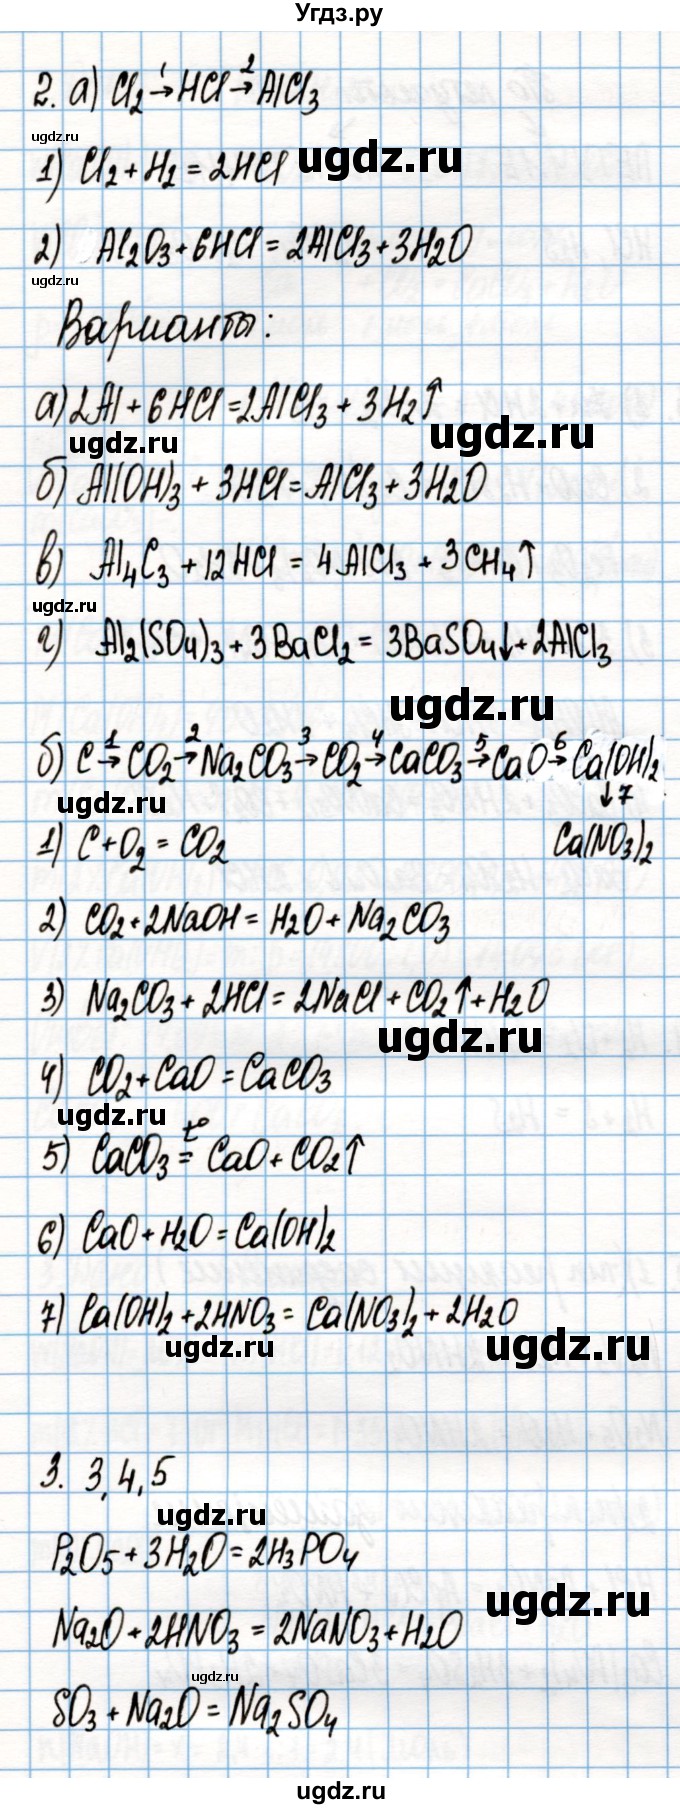 Угдз.ру
2. а) Cl₂ →¹ HCl →² AlCl₃
ugdz.ru
ugdz.ru
1) Cl₂ + H₂ = 2HCl
2) Al₂O₃ + 6HCl = 2AlCl₃ + 3H₂O
ugdz.ru
Варианты:
а) 2Al + 6HCl = 2AlCl₃ + 3H₂↑
ugdz.ru
ugdz.ru
б) Al(OH)₃ + 3HCl = AlCl₃ + 3H₂O
в) Al₄C₃ + 12HCl = 4AlCl₃ + 3CH₄↑
ugdz.ru
г) Al₂(SO₄)₃ + 3BaCl₂ = 3BaSO₄↓ + 2AlCl₃
ugdz.ru
б) C →¹ CO₂ →² Na₂CO₃ →³ CO₂ →⁴ CaCO₃ →⁵ CaO →⁶ Ca(OH)₂
ugdz.ru ↓7
1) C + O₂ = CO₂ Ca(NO₃)₂
2) CO₂ + 2NaOH = H₂O + Na₂CO₃
3) Na₂CO₃ + 2HCl = 2NaCl + CO₂↑ + H₂O
ugdz.ru
4) CO₂ + CaO = CaCO₃
ugdz.ru
5) CaCO₃ =ᵗ° CaO + CO₂↑
6) CaO + H₂O = Ca(OH)₂
7) Ca(OH)₂ + 2HNO₃ = Ca(NO₃)₂ + 2H₂O
ugdz.ru
ugdz.ru
3. 3, 4, 5
ugdz.ru
P₂O₅ + 3H₂O = 2H₃PO₄
ugdz.ru
Na₂O + 2HNO₃ = 2NaNO₃ + H₂O
ugdz.ru
SO₃ + Na₂O = Na₂SO₄
ugdz.ru